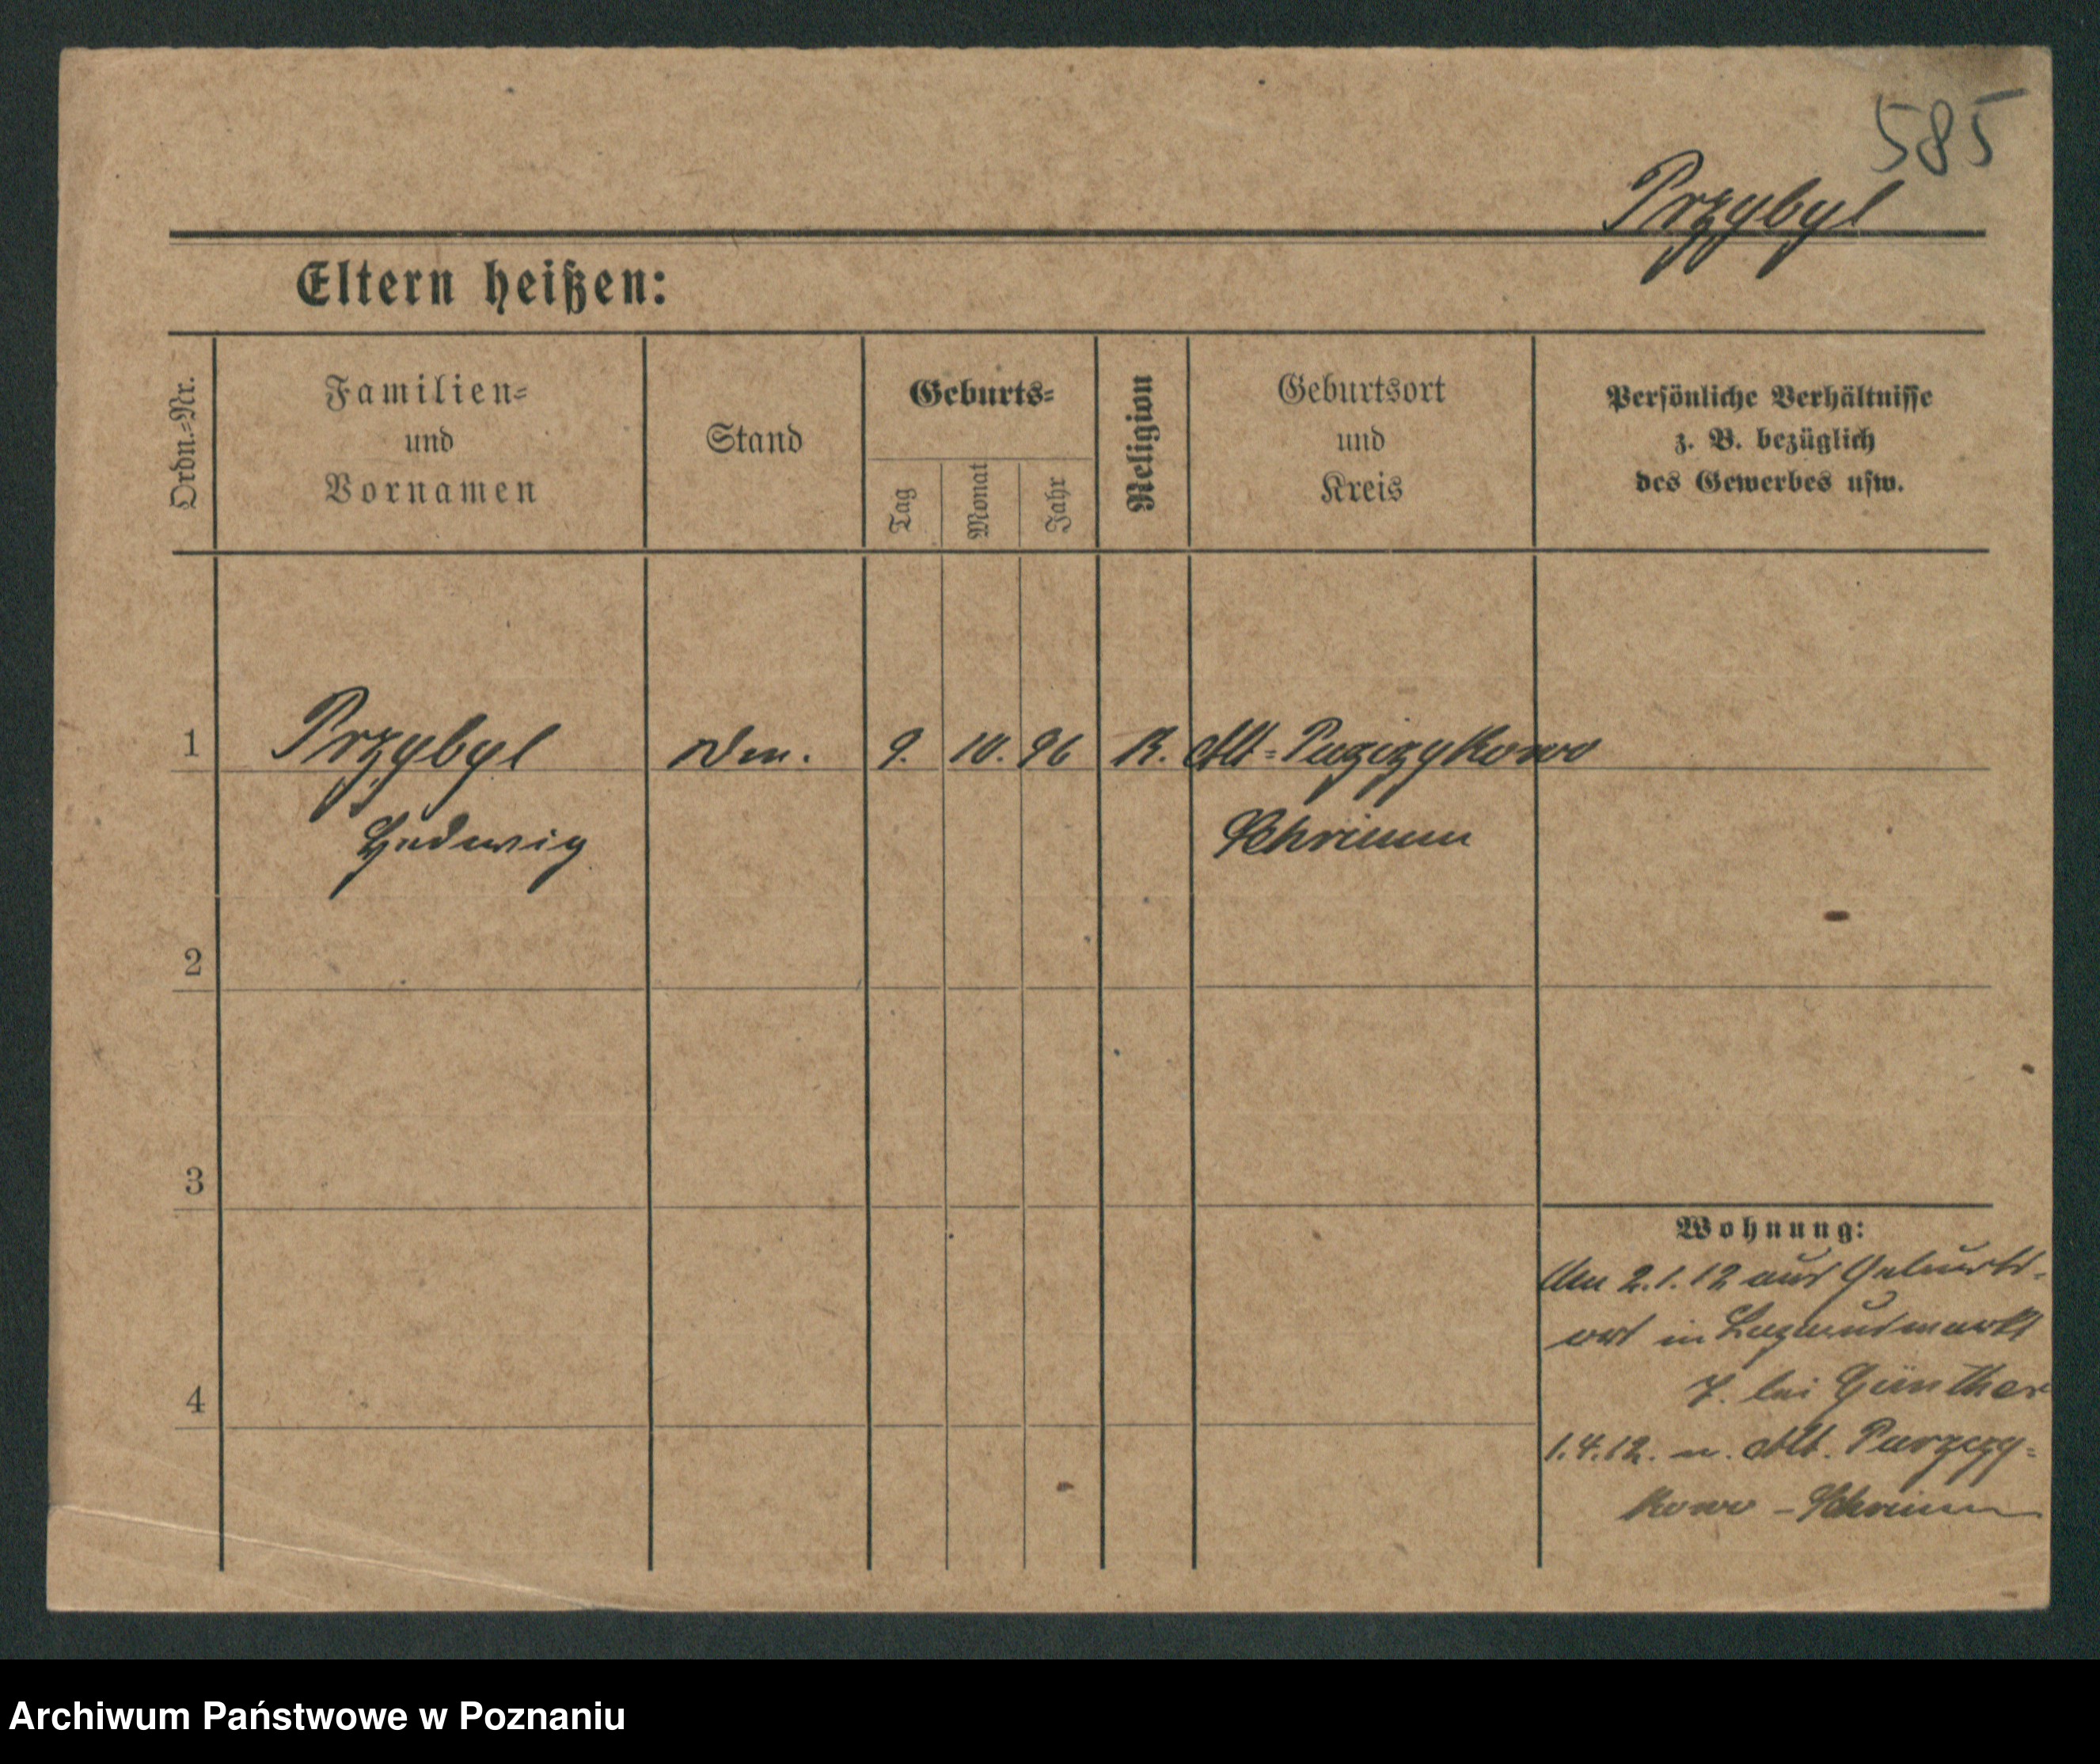 585
Przybyl
Eltern heißen:
Ordn.-Nr.
Familien-
und
Vornamen
Stand
Geburts-
Tag
Monat
Jahr
Religion
Geburtsort
und
Kreis
Persönliche Verhältnisse
z. B. bezüglich
des Gewerbes usw.
1
Przybyl
9.
10.
96
K.
Alt-
Hedwig
Schrimm
2
3
4
Wohnung:
Am 2.1.12 aus Geburts-
ort in Lazarusmarkt
7. bei Günther
1.4.12. n. Alt.
kowo - Schrimm
Archiwum Państwowe w Poznaniu